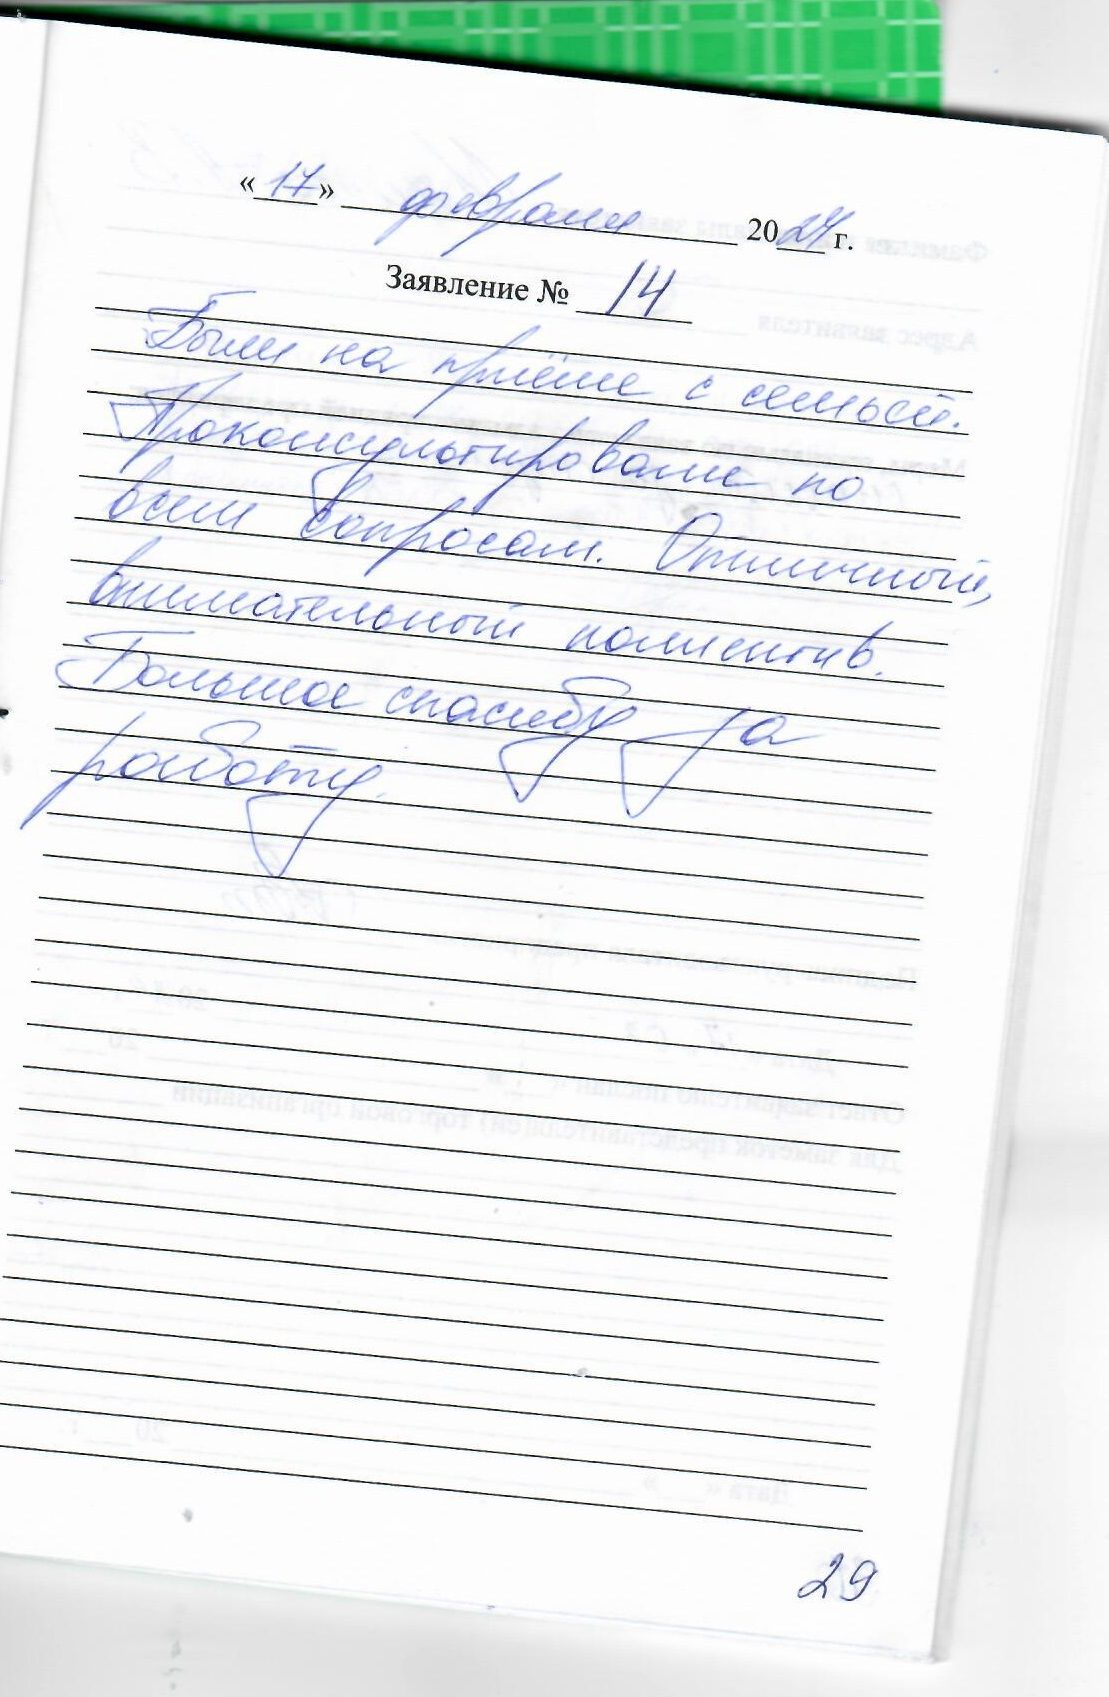 «17» февраля 2024 г.
Заявление № 14
Были на приёме с семьёй.
Проконсультировали по
всем вопросам. Отличный,
внимательный коллектив.
Большое спасибо за
работу.
29